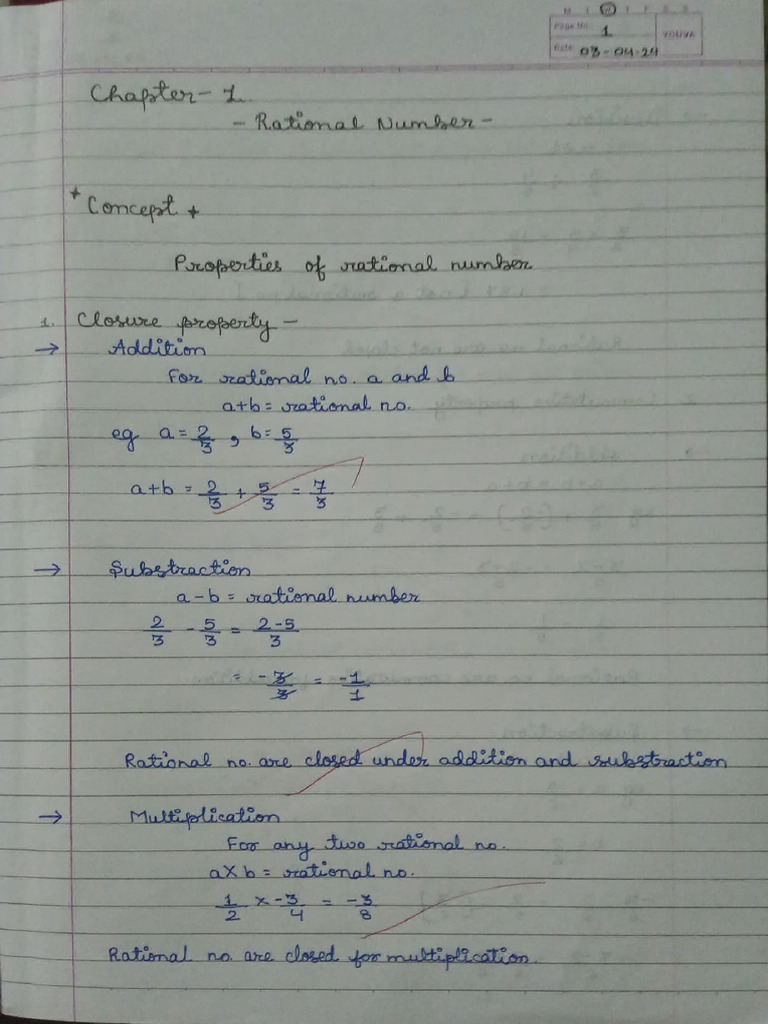 M T W T F S S
Page No. 1
YOUVA
Date 03-04-24
Chapter-1
- Rational Number -
* Concept *
Properties of rational number
1. Closure property -
→ Addition
For rational no. a and b
a+b = rational no.
eg a = 2/3 , b = 5/3
a+b = 2/3 + 5/3 = 7/3
→ Substraction
a-b = rational number
2/3 - 5/3 = 2-5/3
= -3/3 = -1/1
Rational no. are closed under addition and substraction
→ Multiplication
For any two rational no.
a×b = rational no.
1/2 × -3/4 = -3/8
Rational no. are closed for multiplication.